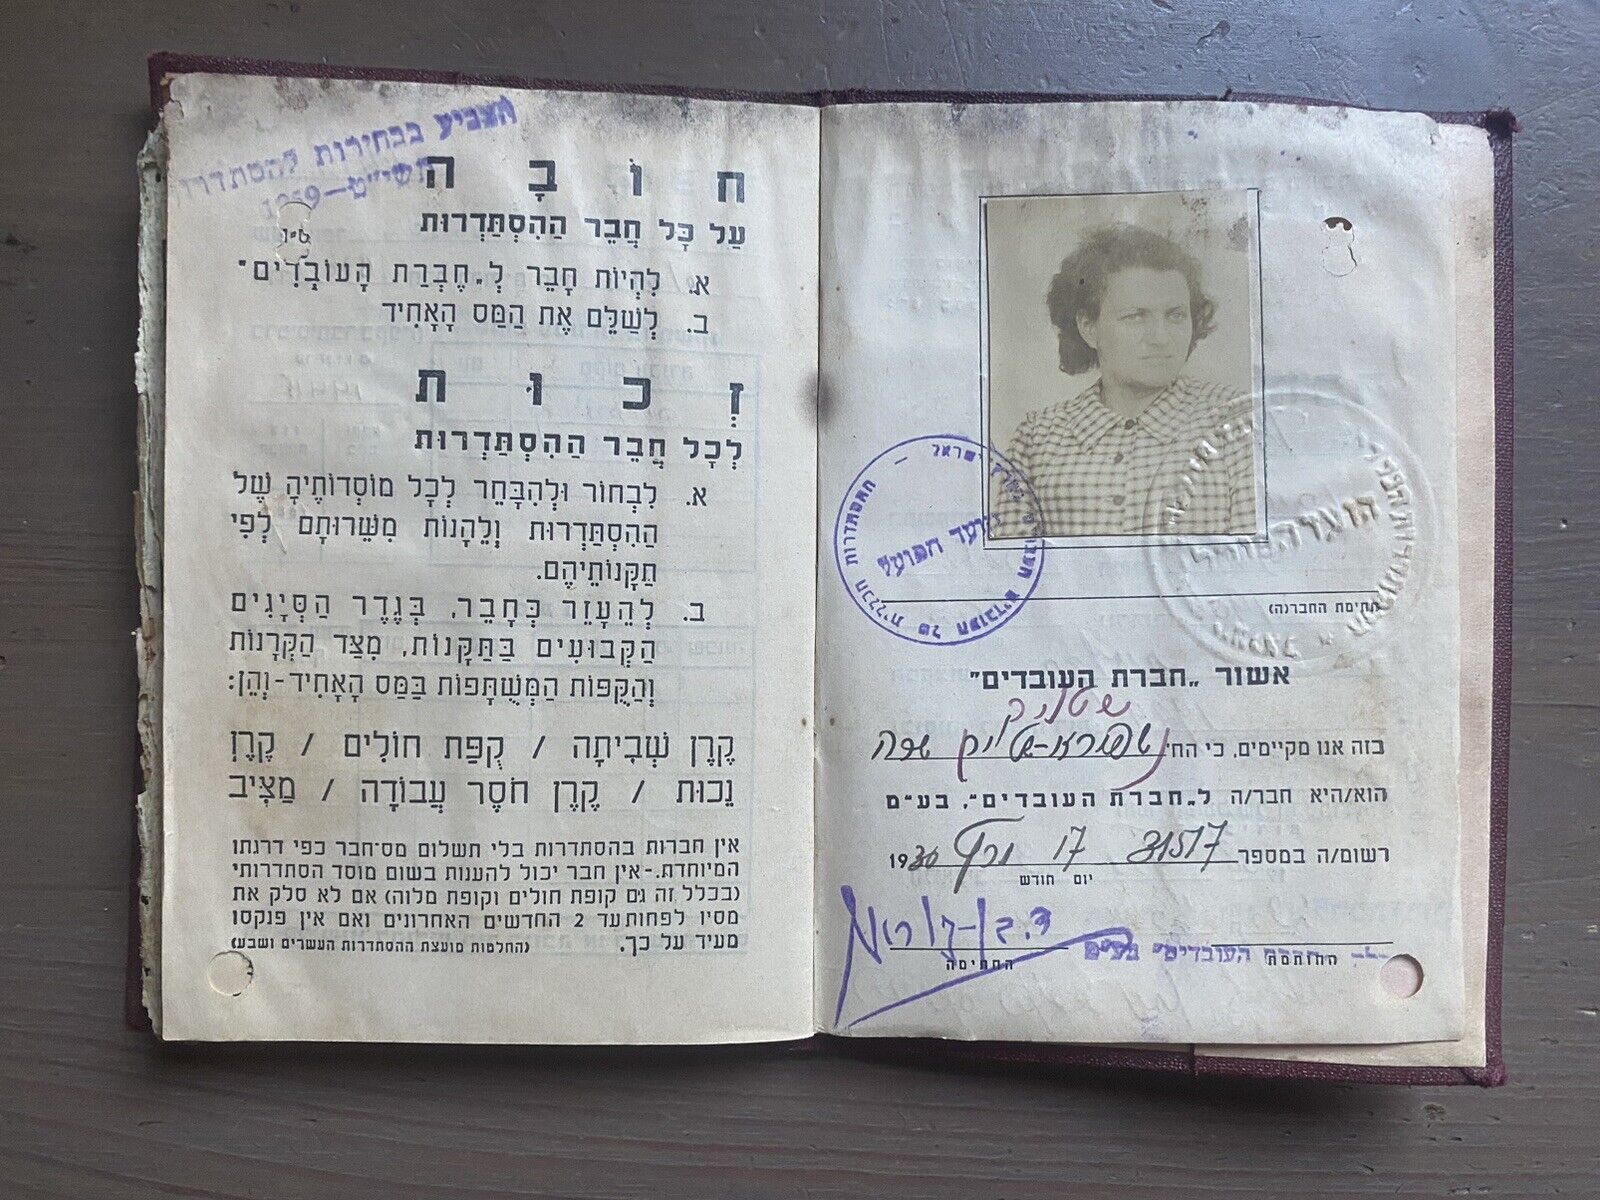 הצביע בבחירות להסתדרות
תשי״ט–1959
חוֹבָה
עַל כָּל חֲבֵר הַהִסְתַּדְרוּת
א. לִהְיוֹת חָבֵר לְ„חֶבְרַת הָעוֹבְדִים״
ב. לְשַׁלֵּם אֶת הַמַּס הָאָחִיד
זְכוּת
לְכָל חֲבֵר הַהִסְתַּדְרוּת
א. לִבְחוֹר וּלְהִבָּחֵר לְכָל מוֹסְדוֹתֶיהָ שֶׁל
הַהִסְתַּדְרוּת וְלֵהָנוֹת מִשֵּׁרוּתָם לְפִי
תַקָּנוֹתֵיהֶם.
ב. לְהֵעָזֵר כְּחָבֵר, בְּגֶדֶר הַסְּיָגִים
הַקְּבוּעִים בַּתַּקָּנוֹת, מִצַּד הַקְּרָנוֹת
וְהַקֻּפּוֹת הַמְשֻׁתָּפוֹת בַּמַּס הָאָחִיד-וְהֵן:
קֶרֶן שְׁבִיתָה / קֻפַּת חוֹלִים / קֶרֶן
נָכוּת / קֶרֶן חֹסֶר עֲבוֹדָה / מַצִּיב
אין חברות בהסתדרות בלי תשלום מס־חבר כפי דרגתו
המיוחדת.-אין חבר יכול להענות בשום מוסד הסתדרותי
(בכלל זה גם קופת חולים וקופת מלוה) אם לא סלק את
מסיו לפחות עד 2 החדשים האחרונים ואם אין פנקסו
מעיד על כך. (החלטות מועצת ההסתדרות העשרים ושבע)
ההסתדרות הכללית של העובדים העברים בארץ ישראל
הועד הפועל
הועד הפועל
חתימת החבר(ה)
אשור „חברת העובדים״
שטליק
בזה אנו מקיימים, כי הח׳ שרה
הוא/היא חבר/ה ל„חברת העובדים״, בע״מ
רשום/ה במספר 31517 17 1930
יום חודש
ד. בן-גוריון
חברת העובדים״ בע״מ
החותמת החתימה